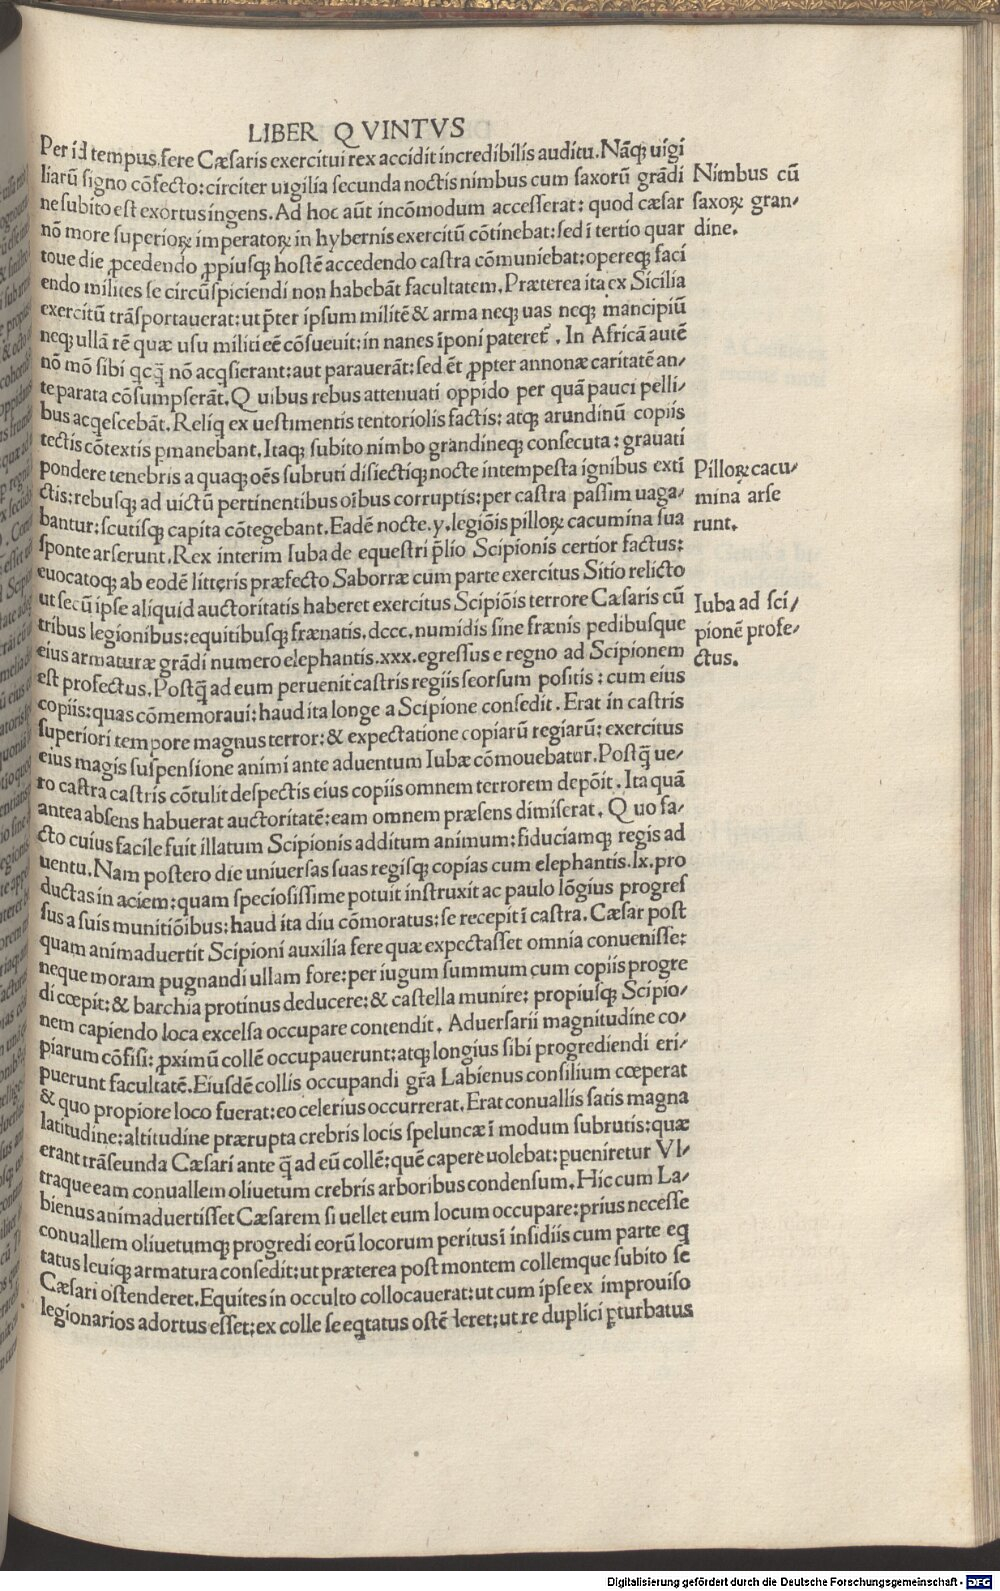 LIBER QVINTVS
Per id tempus fere Cæsaris exercitui rex accidit incredibilis auditu. Nāq; uigi
liarū signo cōfecto: circiter uigilia secunda noctis nimbus cum saxorū grādi
ne subito est exortus ingens. Ad hoc aūt incōmodum accesserat: quod cæsar
nō more superioꝝ imperatoꝝ in hybernis exercitū cōtinebat: sed i tertio quar
toue die ꝓcedendo ꝓpiusq; hostē accedendo castra cōmuniebat: opereq; faci
endo milites se circūspiciendi non habebāt facultatem. Præterea ita ex Sicilia
exercitū trāsportauerat: ut p̄ter ipsum militē & arma neq; uas neq; mancipiū
neq; ullā rē quæ usu militi eē cōsueuit: in naues īponi pateret. In Africā autē
nō mō sibi qcq̄ nō acqsierant: aut parauerāt: sed ēt ꝓpter annonæ caritatē an/
te parata cōsumpserāt. Quibus rebus attenuati oppido per quā pauci pelli/
bus acqescebāt. Reliq ex uestimentis tentoriolis factis: atq; arundinū copiis
tectis cōtextis pmanebant. Itaq; subito nimbo grandineq; consecuta: grauati
pondere tenebris a quaq; oēs subruti disiectiq; nocte intempesta ignibus exti
ctis: rebusq; ad uictū pertinentibus oībus corruptis: per castra passim uaga/
bantur: scutisq; capita cōtegebant. Eadē nocte .y. legiōis pilloꝝ cacumina sua
sponte arserunt. Rex interim Iuba de equestri p̄lio Scipionis certior factus:
euocatoq; ab eodē litteris præfecto Saborræ cum parte exercitus Sitio relicto
ut secū ipse aliquid auctoritatis haberet exercitus Scipiōis terrore Cæsaris cū
tribus legionibus: equitibusq; frænatis .dccc. numidis sine frænis pedibusque
eius armaturæ grādi numero elephantis .xxx. egressus e regno ad Scipionem
est profectus. Postq̄ ad eum peruenit castris regiis seorsum positis: cum eius
copiis: quas cōmemoraui: haud ita longe a Scipione consedit. Erat in castris
superiori tempore magnus terror: & expectatione copiarū regiarū: exercitus
eius magis suspensione animi ante aduentum Iubæ cōmouebatur. Postq̄ ue/
ro castra castris cōtulit despectis eius copiis omnem terrorem depōit. Ita quā
antea absens habuerat auctoritatē: eam omnem præsens dimiserat. Quo fa/
cto cuius facile fuit illatum Scipionis additum animum: fiduciamq; regis ad
uentu. Nam postero die uniuersas suas regisq; copias cum elephantis .lx. pro
ductas in aciem: quam speciosissime potuit instruxit ac paulo lōgius progres
sus a suis munitiōibus: haud ita diu cōmoratus: se recepit ī castra. Cæsar post
quam animaduertit Scipioni auxilia fere quæ expectasset omnia conuenisse:
neque moram pugnandi ullam fore: per iugum summum cum copiis progre
di cœpit: & barchia protinus deducere: & castella munire: propiusq; Scipio/
nem capiendo loca excelsa occupare contendit. Aduersarii magnitudine co/
piarum cōfisi: ꝓximū collē occupauerunt: atq; longius sibi progrediendi eri/
puerunt facultatē. Eiusdē collis occupandi gr̄a Labienus consilium cœperat
& quo propiore loco fuerat: eo celerius occurrerat. Erat conuallis satis magna
latitudine: altitudine prærupta crebris locis speluncæ ī modum subrutis: quæ
erant trāseunda Cæsari ante q̄ ad eū collē: quē capere uolebat: pueniretur Vl/
traque eam conuallem oliuetum crebris arboribus condensum. Hic cum La/
bienus animaduertisset Cæsarem si uellet eum locum occupare: prius necesse
conuallem oliuetumq; progredi eorū locorum peritus ī insidiis cum parte eq
tatus leuiq; armatura consedit: ut præterea post montem collemque subito sē
Cæsari ostenderet. Equites in occulto collocauerat: ut cum ipse ex improuiso
legionarios adortus esset: ex colle se eqtatus ostēderet: ut re duplici ꝑturbatus
Nimbus cū
saxoꝝ gran/
dine.
Pilloꝝ cacu/
mina arse
runt.
Iuba ad sci/
pionē profe/
ctus.
Digitalisierung gefördert durch die Deutsche Forschungsgemeinschaft - DFG